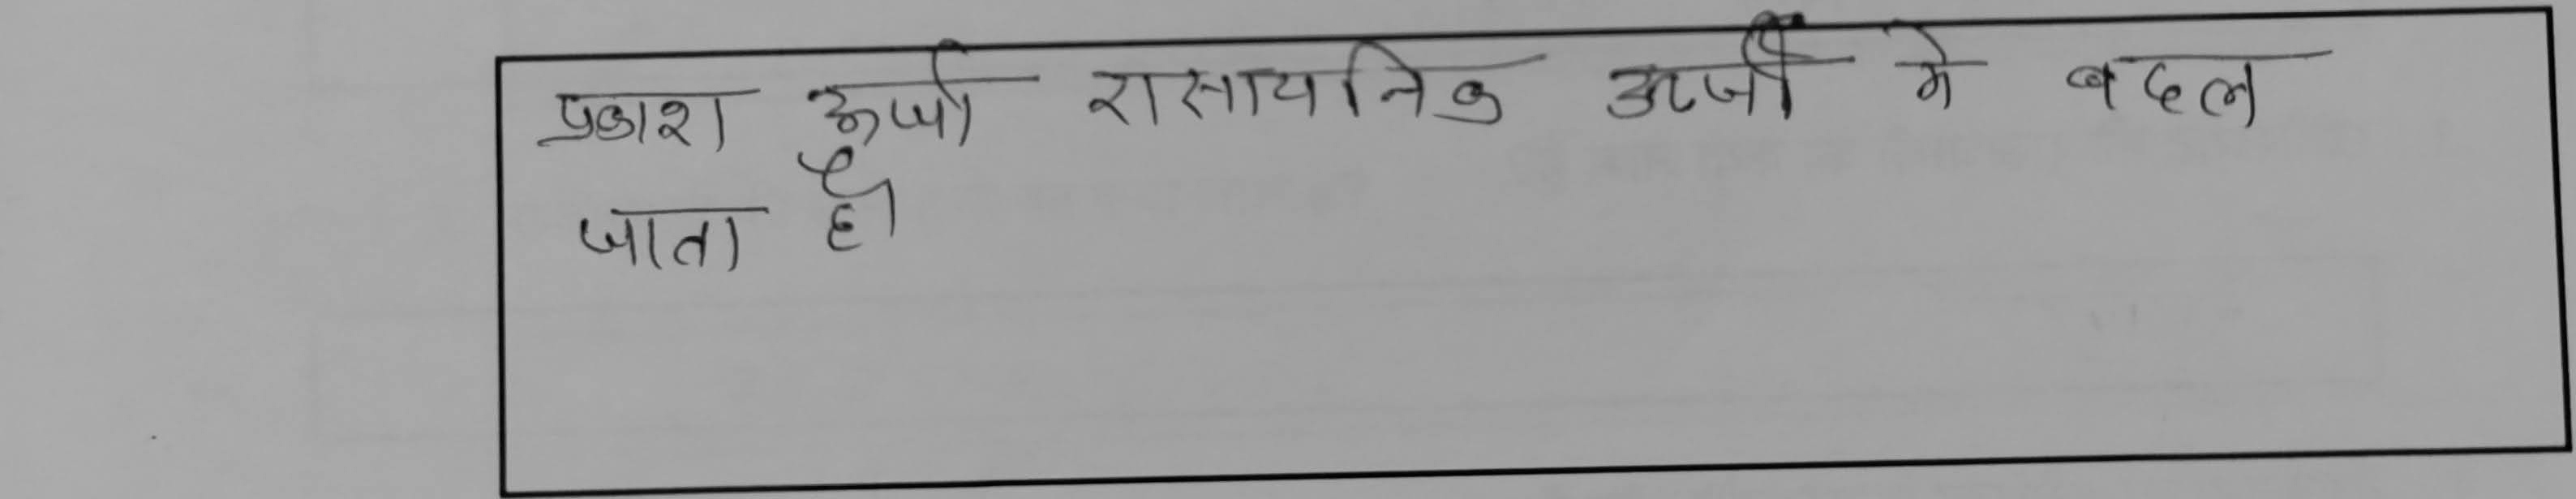 प्रकाश ऊर्जा रासायनिक ऊर्जा मे बदल
जाता है।